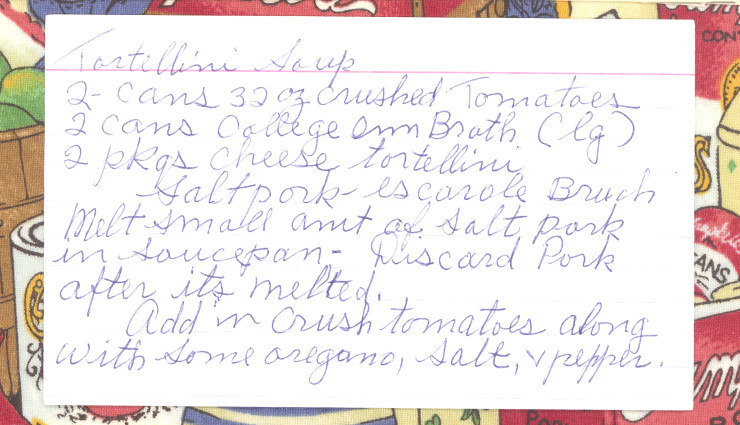 Tortellini Soup
2- cans 32 oz crushed Tomatoes
2 cans College Inn Broth (lg)
2 pkgs cheese tortellini
Saltpork - escarole Bruch
Melt small amt of salt pork
in saucepan - Discard Pork
after its melted.
Add in crush tomatoes along
with some oregano, salt, & pepper.
CON
ANS